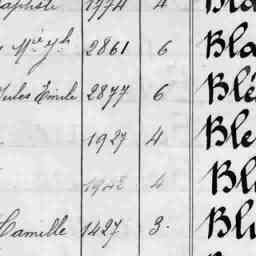 aptiste 1994 4 Bla
Mie Jh 2861 6 Bla
Jules Emile 2877 6 Blé
1927 4 Ble
1942 4 Bl
Camille 1427 3. Bl